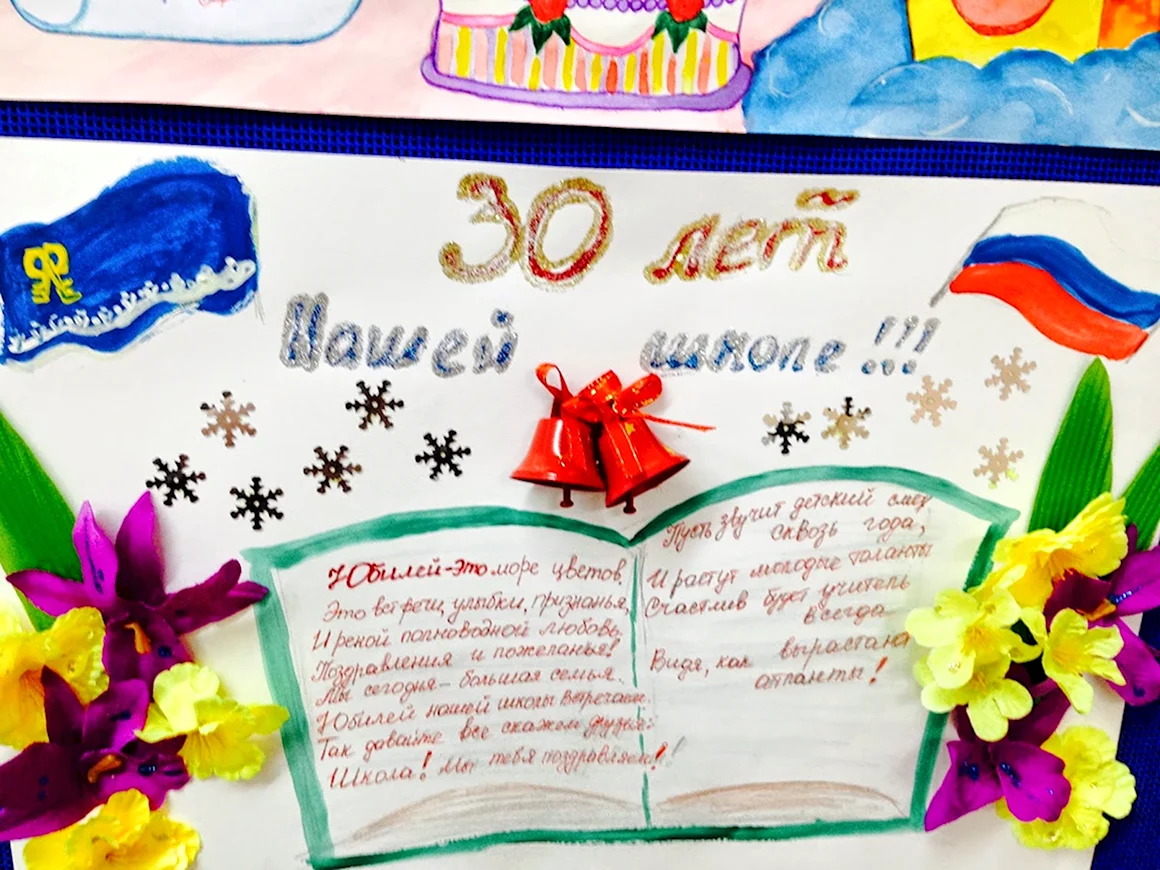 30 лет
Нашей школе!!!
Юбилей-это море цветов,
Это встречи, улыбки, признанья,
И рекой полноводной любовь,
Поздравления и пожеланья!
Мы сегодня - большая семья.
Юбилей нашей школы встречаем
Так давайте все скажем друзья:
Школа! Мы тебя поздравляем!!
Пусть звучит детский смех
сквозь года,
И растут молодые таланты
Счастлив будет учитель
всегда
Видя, как вырастают
атланты!